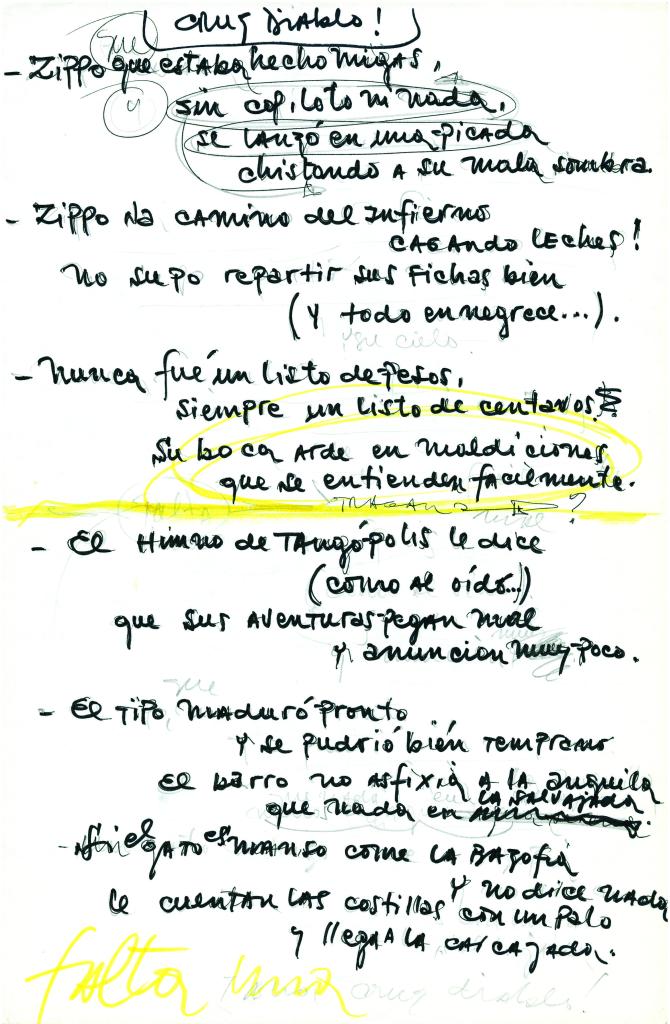 CRUZ DIABLO!
que
- Zippo que estaba hecho migas,
y
sin cop, loto ni nada,
se lanzó en una picada
chistando a su mala sombra.
- Zippo va camino del infierno
CAGANDO LECHES!
No supo repartir sus fichas bien
(y todo ennegrece...).
- Nunca fué un listo de pesos,
siempre un listo de centavos
su boca arde en maldiciones
que se entienden facilmente.
- El Himno de Tangópolis le dice
(como al oído...)
que sus aventuras pegan mal
y anuncian muy poco.
que
- El tipo maduró pronto
y se pudrió bién temprano
El barro no asfixia a la anguila
que nada en la salvajada
- Si el gato es manso come la bazofia
y no dice nada
le cuentan las costillas con un palo
y llega a la carcajada.
falta una
cruz diablo!